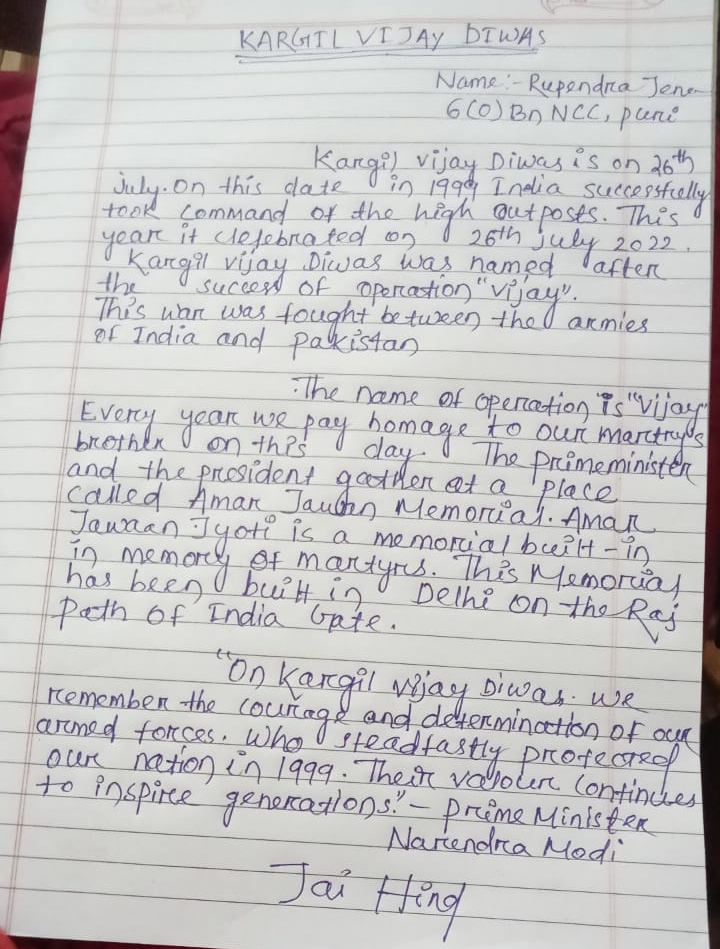 KARGIL VIJAY DIWAS
Name:- Rupendra Jena
6(O) Bn NCC, puri
Kargil vijay Diwas is on 26th
july. On this date in 1999 India successfully
took command of the high outposts. This
year it clefebrated on 26th july 2022.
Kargil vijay Diwas was named after
the success of operastion "vijay".
This war was fought between the armies
of India and pakistan
:The name of operation is "Vijay"
Every year we pay homage to our martry's
brother on this day. The primeminister
and the president gather at a place
called Amar Jawan Memorial. Amar
Jawaan Jyoti is a memorial built-in
in memory of martyrs. This Memorial
has been built in Delhi on the Raj
Path of India Gate.
"On Kargil Vijay Diwas. we
remember the courage and determination of our
armed forces. Who steadfastly protected
our nation in 1999. Their valour continues
to inspire generations." - prime Minister
Narendra Modi
Jai Hind